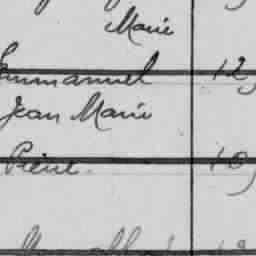 Marie
Emmanuel 12
Jean Marie
Pierre 10